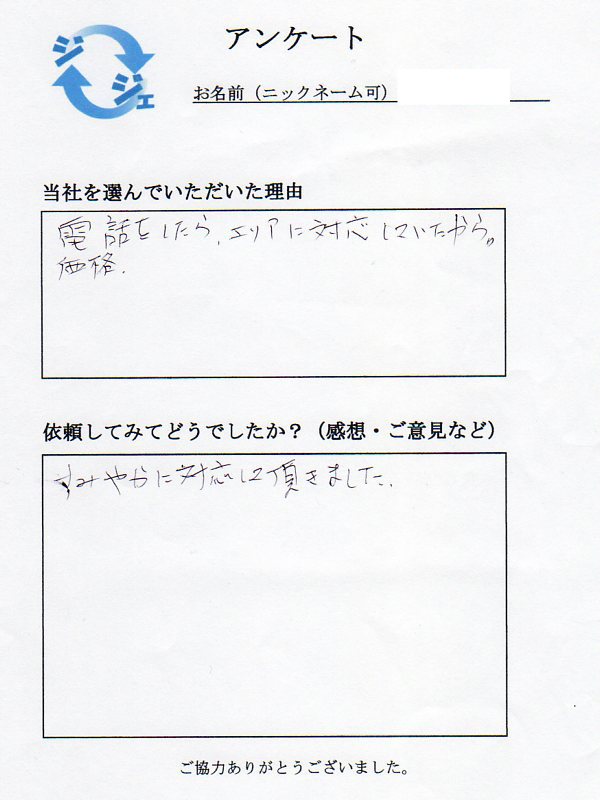 ジジェ
アンケート
お名前（ニックネーム可）
当社を選んでいただいた理由
電話をしたら、エリアに対応していたから。
価格.
依頼してみてどうでしたか？（感想・ご意見など）
すみやかに対応して頂きました.
ご協力ありがとうございました。